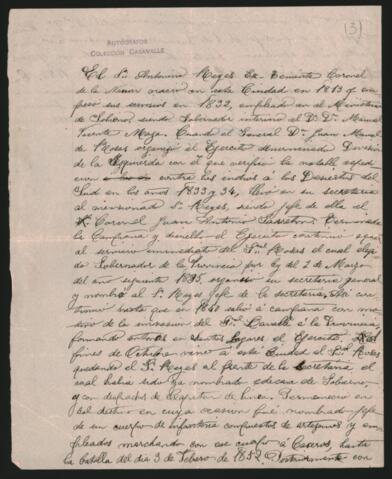 (3)
AUTÓGRAFOS
COLECCIÓN CASAVALLE
El Sr. Antonino Reyes Ex-Teniente Coronel
de la Nacion nació en esta Ciudad en 1813 y em
pezó sus servicios en 1832, empleado en el Ministerio
de Gobierno, siendo Gobernador interino el Dr. Dn. Manuel
Vicente Maza. Cuando el General Dn. Juan Manuel
de Rosas organizó el Ejercito denominado Division
de la Izquierda con el que verificó la notable esped
cion contra los indios á los Desiertos del
Sud en los años 1833 y 34, llevó en su secretaria
al mencionado Sr. Reyes, siendo jefe de ella el
Coronel Juan Antonio Garreton. Terminada
la Campaña y disuelto el Ejercito continuó
al servicio inmediato del Sr. Rosas el cual elejido
Gobernador de la Provincia por ley del 2 de Marzo
del año siguiente 1835, organizó su secretaria general
y nombró al Sr. Reyes jefe de la secretaria,
tinuó hasta que en 1840 salió á campaña con mo
tivo de la invasion del Gl. Lavalle á la Provincia
formando entonces en Santos Lugares el Ejercito.
fines de Octubre vino á esta Ciudad el Sr. Rosas
quedando el Sr. Reyes al frente de la Secretaria el
cual habia sido ya nombrado edecan de Gobierno
y con despachos de Capitan de linea. Permaneció en
el destino en cuya ocasion fué nombrado jefe
de un cuerpo de infanteria compuestos de artesanos y em
pleados marchando con ese cuerpo á Caseros, hasta
la batalla del dia 3 de Febrero de 1852. Posteriormente con